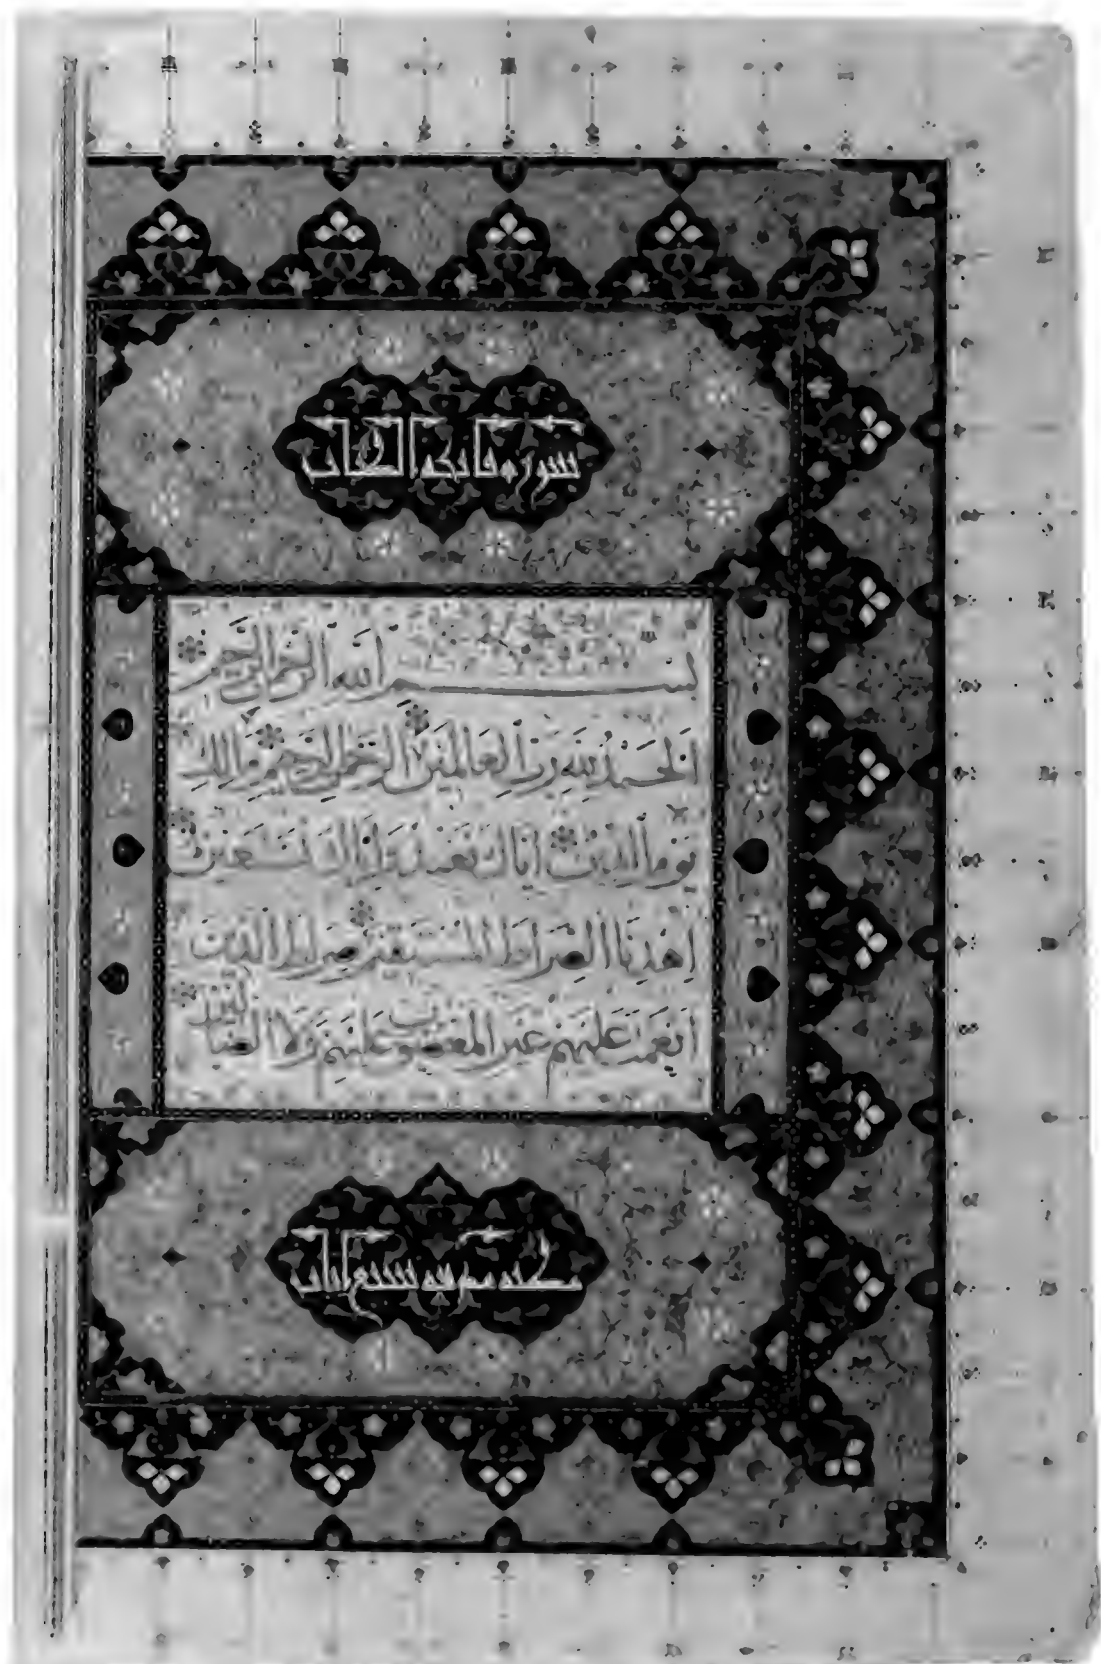 سورة فاتحة الكتاب
بسم الله الرحمن الرحيم
اَلْحَمْدُ لِلّٰهِ رَبِّ الْعَالَمِينَ الرَّحْمٰنِ الرَّحِيمِ مَالِكِ
يَوْمِ الدِّينِ اِيَّاكَ نَعْبُدُ وَاِيَّاكَ نَسْتَعِينُ
اِهْدِنَا الصِّرَاطَ الْمُسْتَقِيمَ صِرَاطَ الَّذِينَ
اَنْعَمْتَ عَلَيْهِمْ غَيْرِ الْمَغْضُوبِ عَلَيْهِمْ وَلَا الضَّالِّينَ
مكية وهى سبع ايات